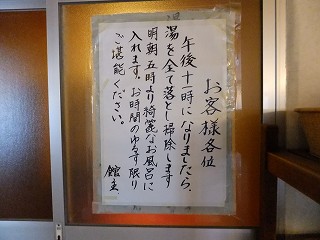 お客様各位
午後十一時になりましたら、
湯を全て落とし掃除します
明朝五時より綺麗なお風呂に
入れます。お時間のゆるす限り
ご堪能ください。
館主